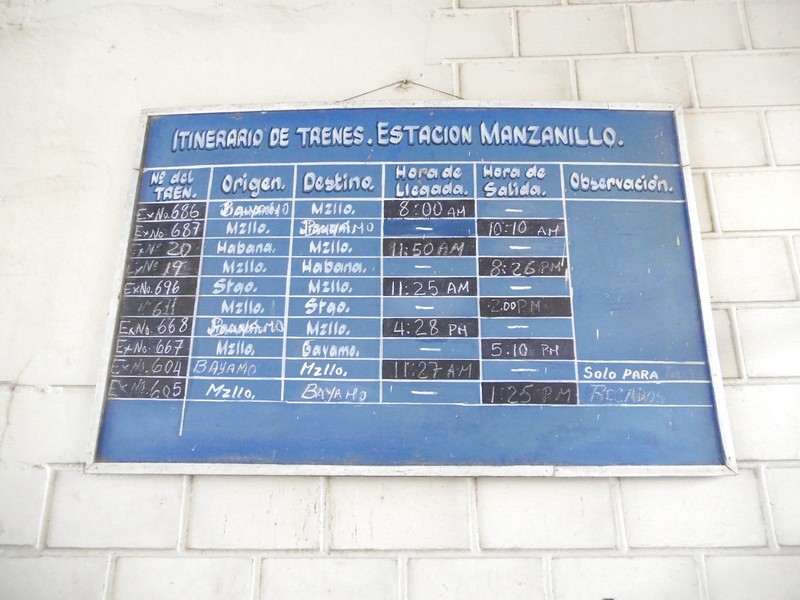 ITINERARIO DE TRENES. ESTACION MANZANILLO.
Nº del TREN. Origen. Destino. Hora de Llegada. Hora de Salida. Observación.
ExNo.686 BAYAMO Mzllo. 8:00 AM —
ExNo.687 Mzllo. BAYAMO — 10:10 AM
ExNº 20 Habana. Mzllo. 11:50 AM —
ExNº 19 Mzllo. Habana. — 8:26 PM
ExNo. 696 Stgo. Mzllo. 11:25 AM —
Nº 611 Mzllo. Stgo. — 2:00 PM
ExNo. 668 BAYAMO Mzllo. 4:28 PM —
ExNo. 667 Mzllo. Bayamo. — 5:10 PM
ExNo. 604 BAYAMO Mzllo. 11:27 AM — SOLO PARA
ExNo. 605 Mzllo. BAYAMO — 1:25 PM